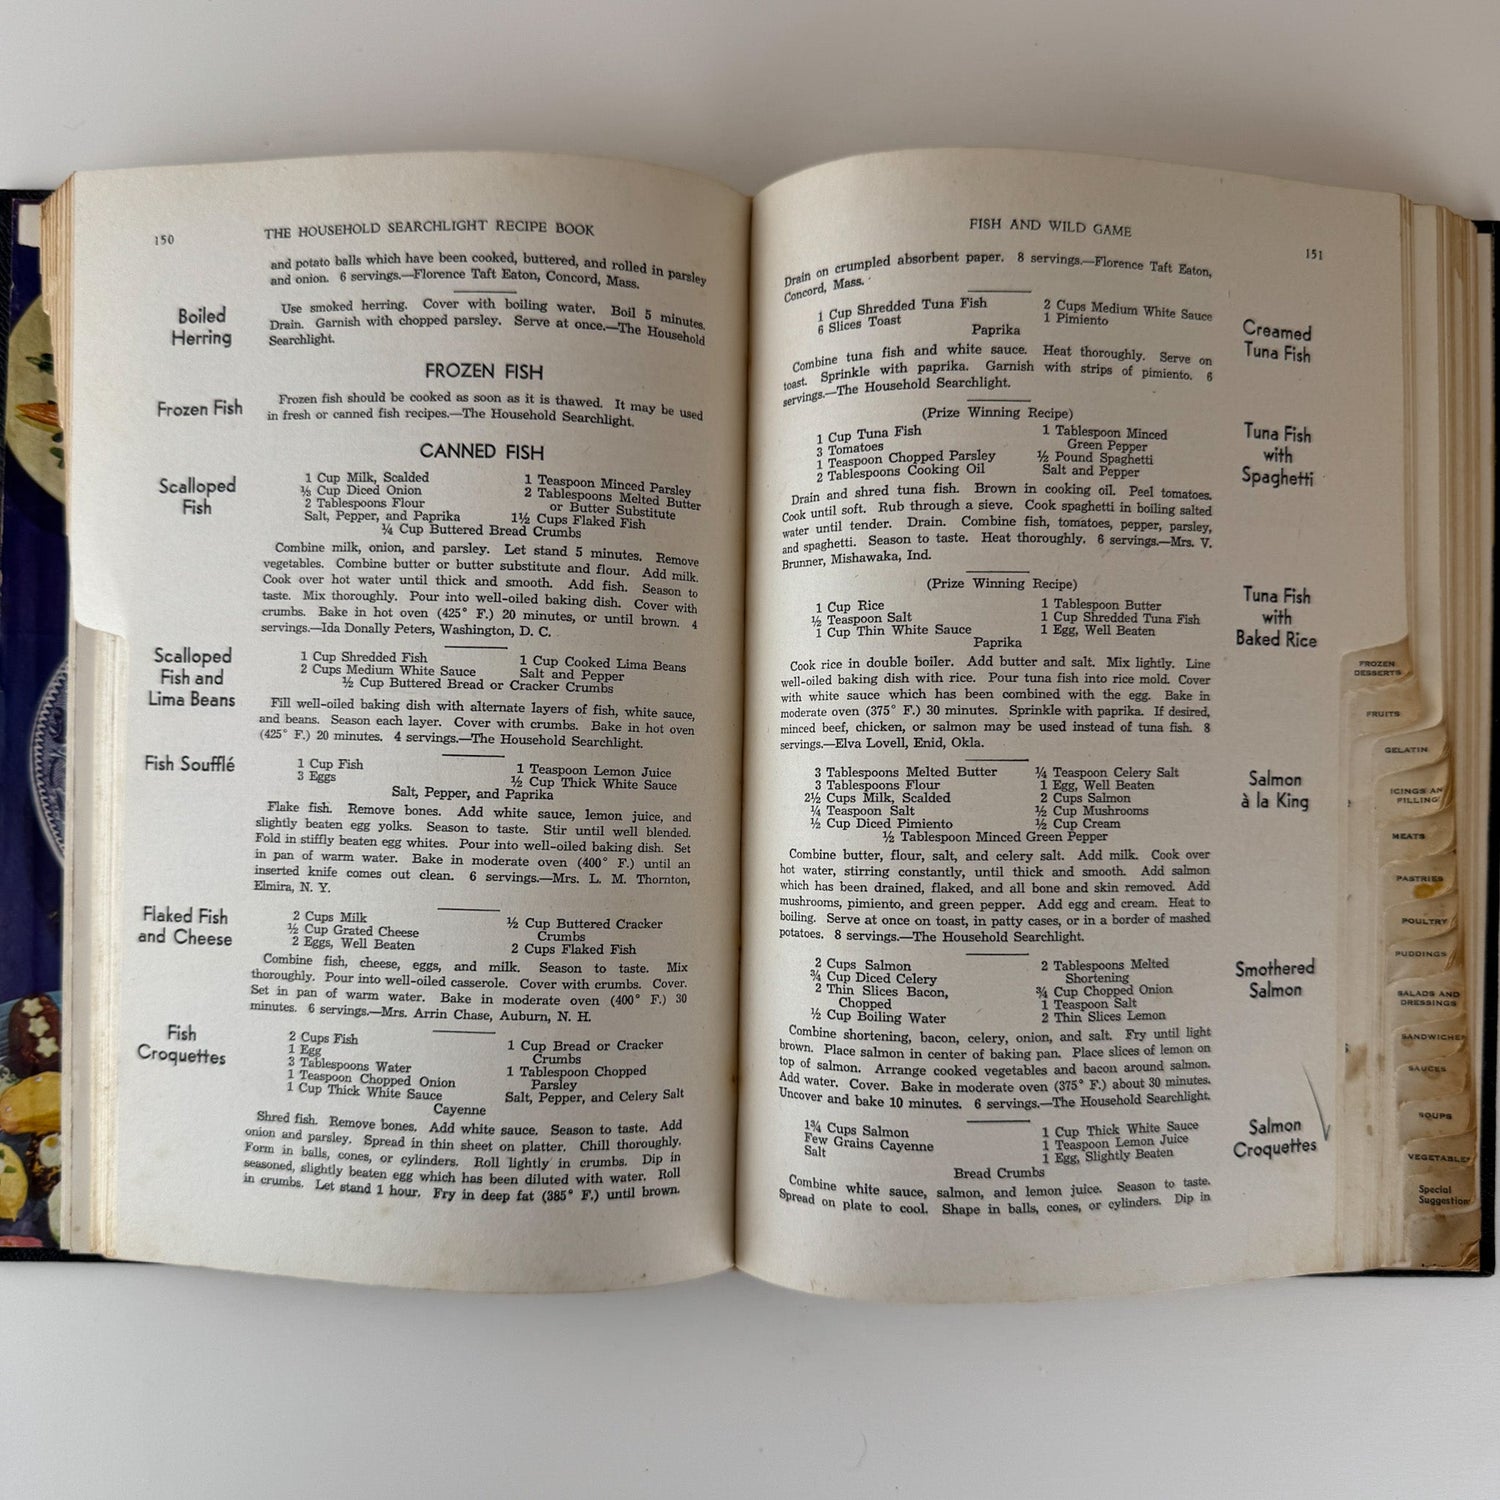 150
THE HOUSEHOLD SEARCHLIGHT RECIPE BOOK
and potato balls which have been cooked, buttered, and rolled in parsley
and onion. 6 servings.—Florence Taft Eaton, Concord, Mass.
Boiled
Herring
Use smoked herring. Cover with boiling water. Boil 5 minutes.
Drain. Garnish with chopped parsley. Serve at once.—The Household
Searchlight.
FROZEN FISH
Frozen Fish
Frozen fish should be cooked as soon as it is thawed. It may be used
in fresh or canned fish recipes.—The Household Searchlight.
CANNED FISH
Scalloped
Fish
1 Cup Milk, Scalded
⅓ Cup Diced Onion
2 Tablespoons Flour
Salt, Pepper, and Paprika
1 Teaspoon Minced Parsley
2 Tablespoons Melted Butter
or Butter Substitute
1½ Cups Flaked Fish
¼ Cup Buttered Bread Crumbs
Combine milk, onion, and parsley. Let stand 5 minutes. Remove
vegetables. Combine butter or butter substitute and flour. Add milk.
Cook over hot water until thick and smooth. Add fish. Season to
taste. Mix thoroughly. Pour into well-oiled baking dish. Cover with
crumbs. Bake in hot oven (425° F.) 20 minutes, or until brown. 4
servings.—Ida Donally Peters, Washington, D. C.
Scalloped
Fish and
Lima Beans
1 Cup Shredded Fish
2 Cups Medium White Sauce
1 Cup Cooked Lima Beans
Salt and Pepper
½ Cup Buttered Bread or Cracker Crumbs
Fill well-oiled baking dish with alternate layers of fish, white sauce,
and beans. Season each layer. Cover with crumbs. Bake in hot oven
(425° F.) 20 minutes. 4 servings.—The Household Searchlight.
Fish Soufflé
1 Cup Fish
3 Eggs
1 Teaspoon Lemon Juice
½ Cup Thick White Sauce
Salt, Pepper, and Paprika
Flake fish. Remove bones. Add white sauce, lemon juice, and
slightly beaten egg yolks. Season to taste. Stir until well blended.
Fold in stiffly beaten egg whites. Pour into well-oiled baking dish. Set
in pan of warm water. Bake in moderate oven (400° F.) until an
inserted knife comes out clean. 6 servings.—Mrs. L. M. Thornton,
Elmira, N. Y.
Flaked Fish
and Cheese
2 Cups Milk
½ Cup Grated Cheese
2 Eggs, Well Beaten
½ Cup Buttered Cracker
Crumbs
2 Cups Flaked Fish
Combine fish, cheese, eggs, and milk. Season to taste. Mix
thoroughly. Pour into well-oiled casserole. Cover with crumbs. Cover.
Set in pan of warm water. Bake in moderate oven (400° F.) 30
minutes. 6 servings.—Mrs. Arrin Chase, Auburn, N. H.
Fish
Croquettes
2 Cups Fish
1 Egg
3 Tablespoons Water
1 Teaspoon Chopped Onion
1 Cup Thick White Sauce
1 Cup Bread or Cracker
Crumbs
1 Tablespoon Chopped
Parsley
Salt, Pepper, and Celery Salt
Cayenne
Shred fish. Remove bones. Add white sauce. Season to taste. Add
onion and parsley. Spread in thin sheet on platter. Chill thoroughly.
Form in balls, cones, or cylinders. Roll lightly in crumbs. Dip in
seasoned, slightly beaten egg which has been diluted with water. Roll
in crumbs. Let stand 1 hour. Fry in deep fat (385° F.) until brown.
FISH AND WILD GAME
151
Drain on crumpled absorbent paper. 8 servings.—Florence Taft Eaton,
Concord, Mass.
1 Cup Shredded Tuna Fish
6 Slices Toast
2 Cups Medium White Sauce
1 Pimiento
Paprika
Creamed
Tuna Fish
Combine tuna fish and white sauce. Heat thoroughly. Serve on
toast. Sprinkle with paprika. Garnish with strips of pimiento. 6
servings.—The Household Searchlight.
(Prize Winning Recipe)
1 Cup Tuna Fish
3 Tomatoes
1 Teaspoon Chopped Parsley
2 Tablespoons Cooking Oil
1 Tablespoon Minced
Green Pepper
½ Pound Spaghetti
Salt and Pepper
Tuna Fish
with
Spaghetti
Drain and shred tuna fish. Brown in cooking oil. Peel tomatoes.
Cook until soft. Rub through a sieve. Cook spaghetti in boiling salted
water until tender. Drain. Combine fish, tomatoes, pepper, parsley,
and spaghetti. Season to taste. Heat thoroughly. 6 servings.—Mrs. V.
Brunner, Mishawaka, Ind.
(Prize Winning Recipe)
1 Cup Rice
½ Teaspoon Salt
1 Cup Thin White Sauce
1 Tablespoon Butter
1 Cup Shredded Tuna Fish
1 Egg, Well Beaten
Paprika
Tuna Fish
with
Baked Rice
Cook rice in double boiler. Add butter and salt. Mix lightly. Line
well-oiled baking dish with rice. Pour tuna fish into rice mold. Cover
with white sauce which has been combined with the egg. Bake in
moderate oven (375° F.) 30 minutes. Sprinkle with paprika. If desired,
minced beef, chicken, or salmon may be used instead of tuna fish. 8
servings.—Elva Lovell, Enid, Okla.
3 Tablespoons Melted Butter
3 Tablespoons Flour
2½ Cups Milk, Scalded
¼ Teaspoon Salt
½ Cup Diced Pimiento
¼ Teaspoon Celery Salt
1 Egg, Well Beaten
2 Cups Salmon
½ Cup Mushrooms
½ Cup Cream
½ Tablespoon Minced Green Pepper
Salmon
à la King
Combine butter, flour, salt, and celery salt. Add milk. Cook over
hot water, stirring constantly, until thick and smooth. Add salmon
which has been drained, flaked, and all bone and skin removed. Add
mushrooms, pimiento, and green pepper. Add egg and cream. Heat to
boiling. Serve at once on toast, in patty cases, or in a border of mashed
potatoes. 8 servings.—The Household Searchlight.
2 Cups Salmon
¾ Cup Diced Celery
2 Thin Slices Bacon,
Chopped
½ Cup Boiling Water
2 Tablespoons Melted
Shortening
¾ Cup Chopped Onion
1 Teaspoon Salt
2 Thin Slices Lemon
Smothered
Salmon
Combine shortening, bacon, celery, onion, and salt. Fry until light
brown. Place salmon in center of baking pan. Place slices of lemon on
top of salmon. Arrange cooked vegetables and bacon around salmon.
Add water. Cover. Bake in moderate oven (375° F.) about 30 minutes.
Uncover and bake 10 minutes. 6 servings.—The Household Searchlight.
1¾ Cups Salmon
Few Grains Cayenne
Salt
1 Cup Thick White Sauce
1 Teaspoon Lemon Juice
1 Egg, Slightly Beaten
Bread Crumbs
Salmon
Croquettes
Combine white sauce, salmon, and lemon juice. Season to taste.
Spread on plate to cool. Shape in balls, cones, or cylinders. Dip in
FROZEN
DESSERTS
FRUITS
GELATIN
ICINGS AN
FILLING
MEATS
PASTRIES
POULTRY
PUDDINGS
SALADS AND
DRESSINGS
SANDWICHES
SAUCES
SOUPS
VEGETABLES
Special
Suggestions